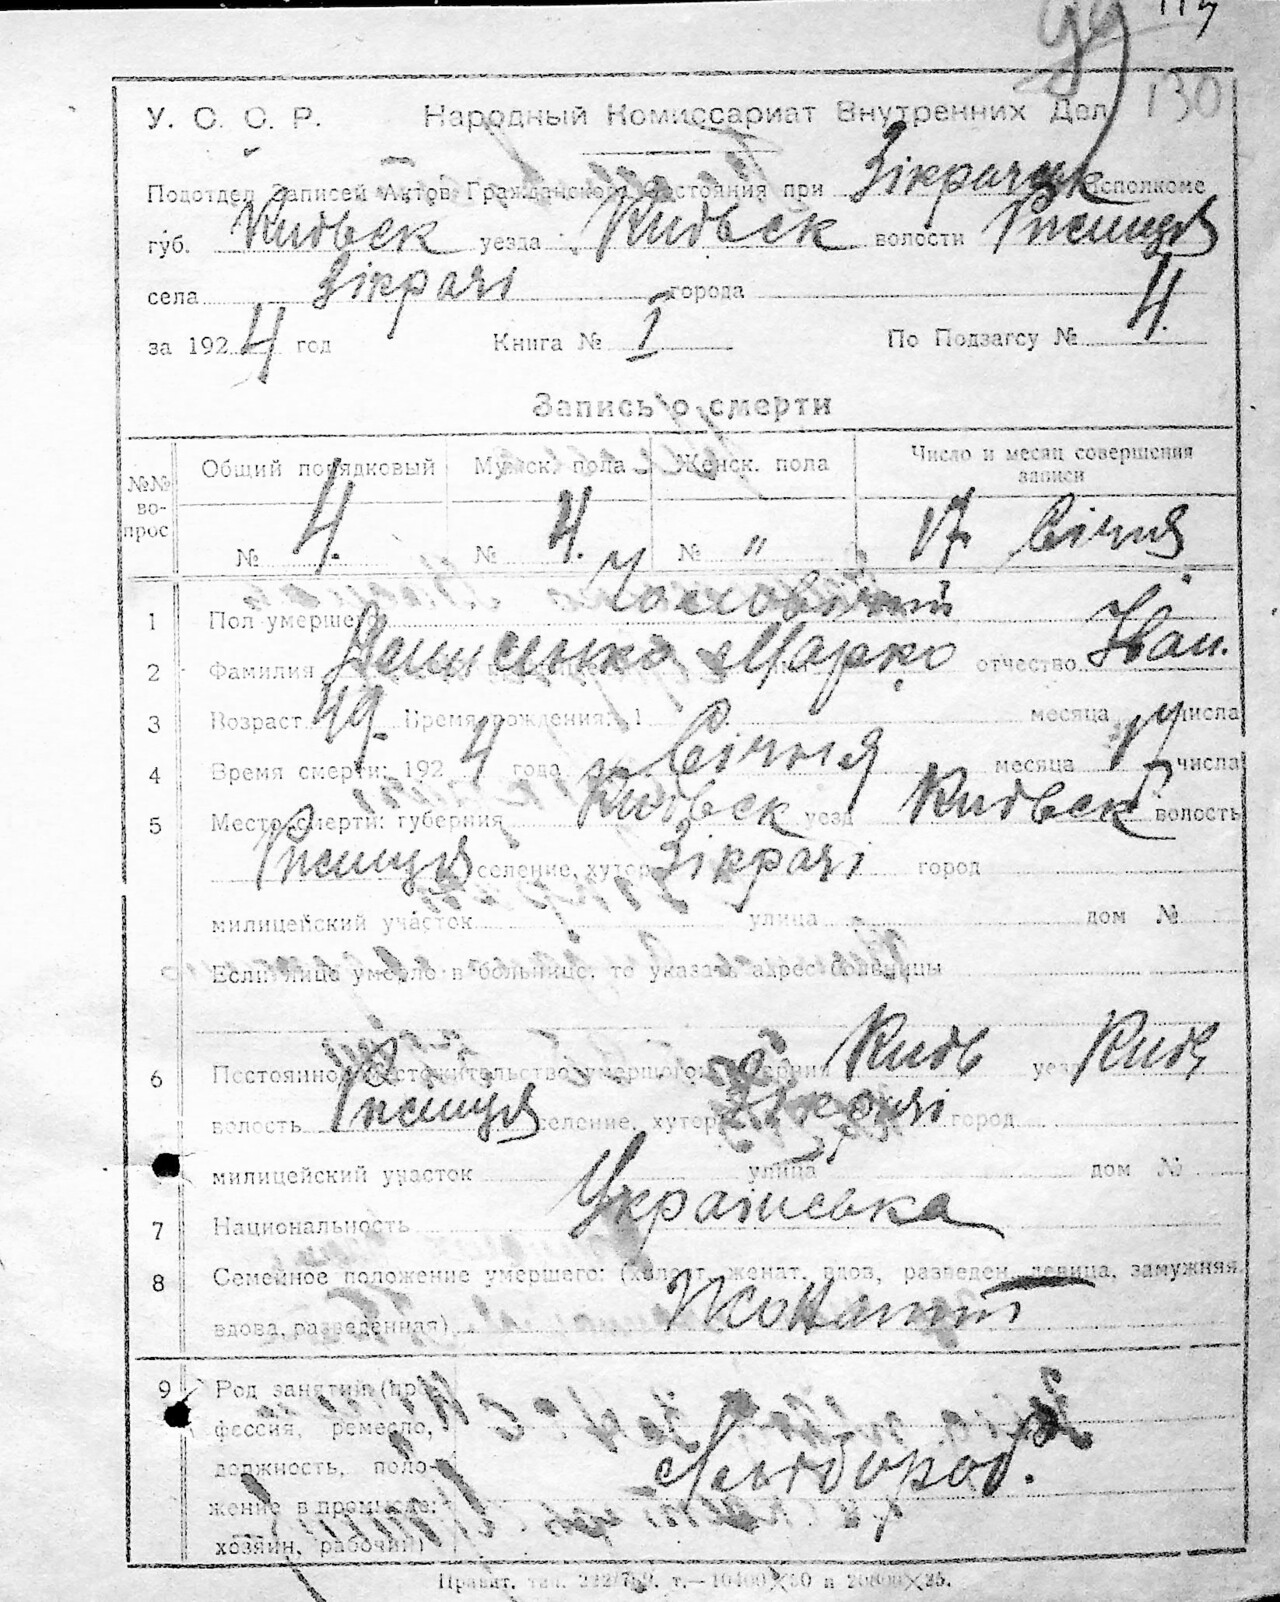 114
130
У. С. С. Р. Народный Комиссариат Внутренних Дел
Подотдел Записей Актов Гражданского Состояния при Зікрачук Исполкоме
губ. Київськ уезда Київськ волости Ржищів
села Зікрачі города
за 1924 год Книга № I По Подзагсу № 4.
Запись о смерти
№№ вопрос Общий порядковый Мужск. пола Женск. пола Число и месяц совершения записи
№ 4. № 4. № " 17 Січня
1 Пол умершего Чоловічий
2 Фамилия Денисенко Марко отчество Іван.
3 Возраст 49. Время рождения: 1 месяца числа
4 Время смерти: 1924 года Січня месяца 17 числа
5 Место смерти: губерния Київськ уезд Київськ волость
Ржищів селение, хутор Зікрачі город
милицейский участок улица дом №
Если лицо умерло в больнице, то указать адрес больницы
6 Постоянное местожительство умершего: губерния Київ уезд Київ
волость Ржищів селение, хутор Зікрачі город
милицейский участок улица дом №
7 Национальность Українська
8 Семейное положение умершего: (холост, женат, вдов, разведен, девица, замужняя,
вдова, разведенная) Жонатий
9 Род занятий (про-
фессия, ремесло,
должность, поло-
жение в промысле:
хозяин, рабочий) Хлібороб.